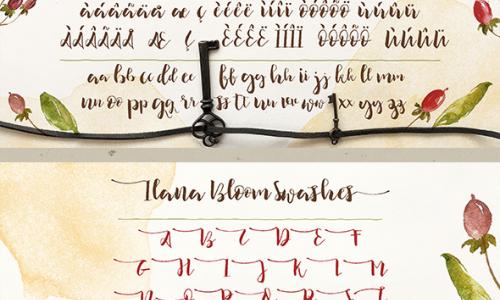 àáâãäå æ ç èéêë ìíîï òóôõö ùúûü
ÀÁÂÃÄÅ Æ Ç ÈÉÊË ÌÍÎÏ ÒÓÔÕÖ ÙÚÛÜ
aa bb cc dd ee ff gg hh ii jj kk ll mm
nn oo pp qq rr ss tt uu vv ww xx yy zz
Ilana Bloom Swashes
A B C D E F
G H I J K L M
N O P Q R S T